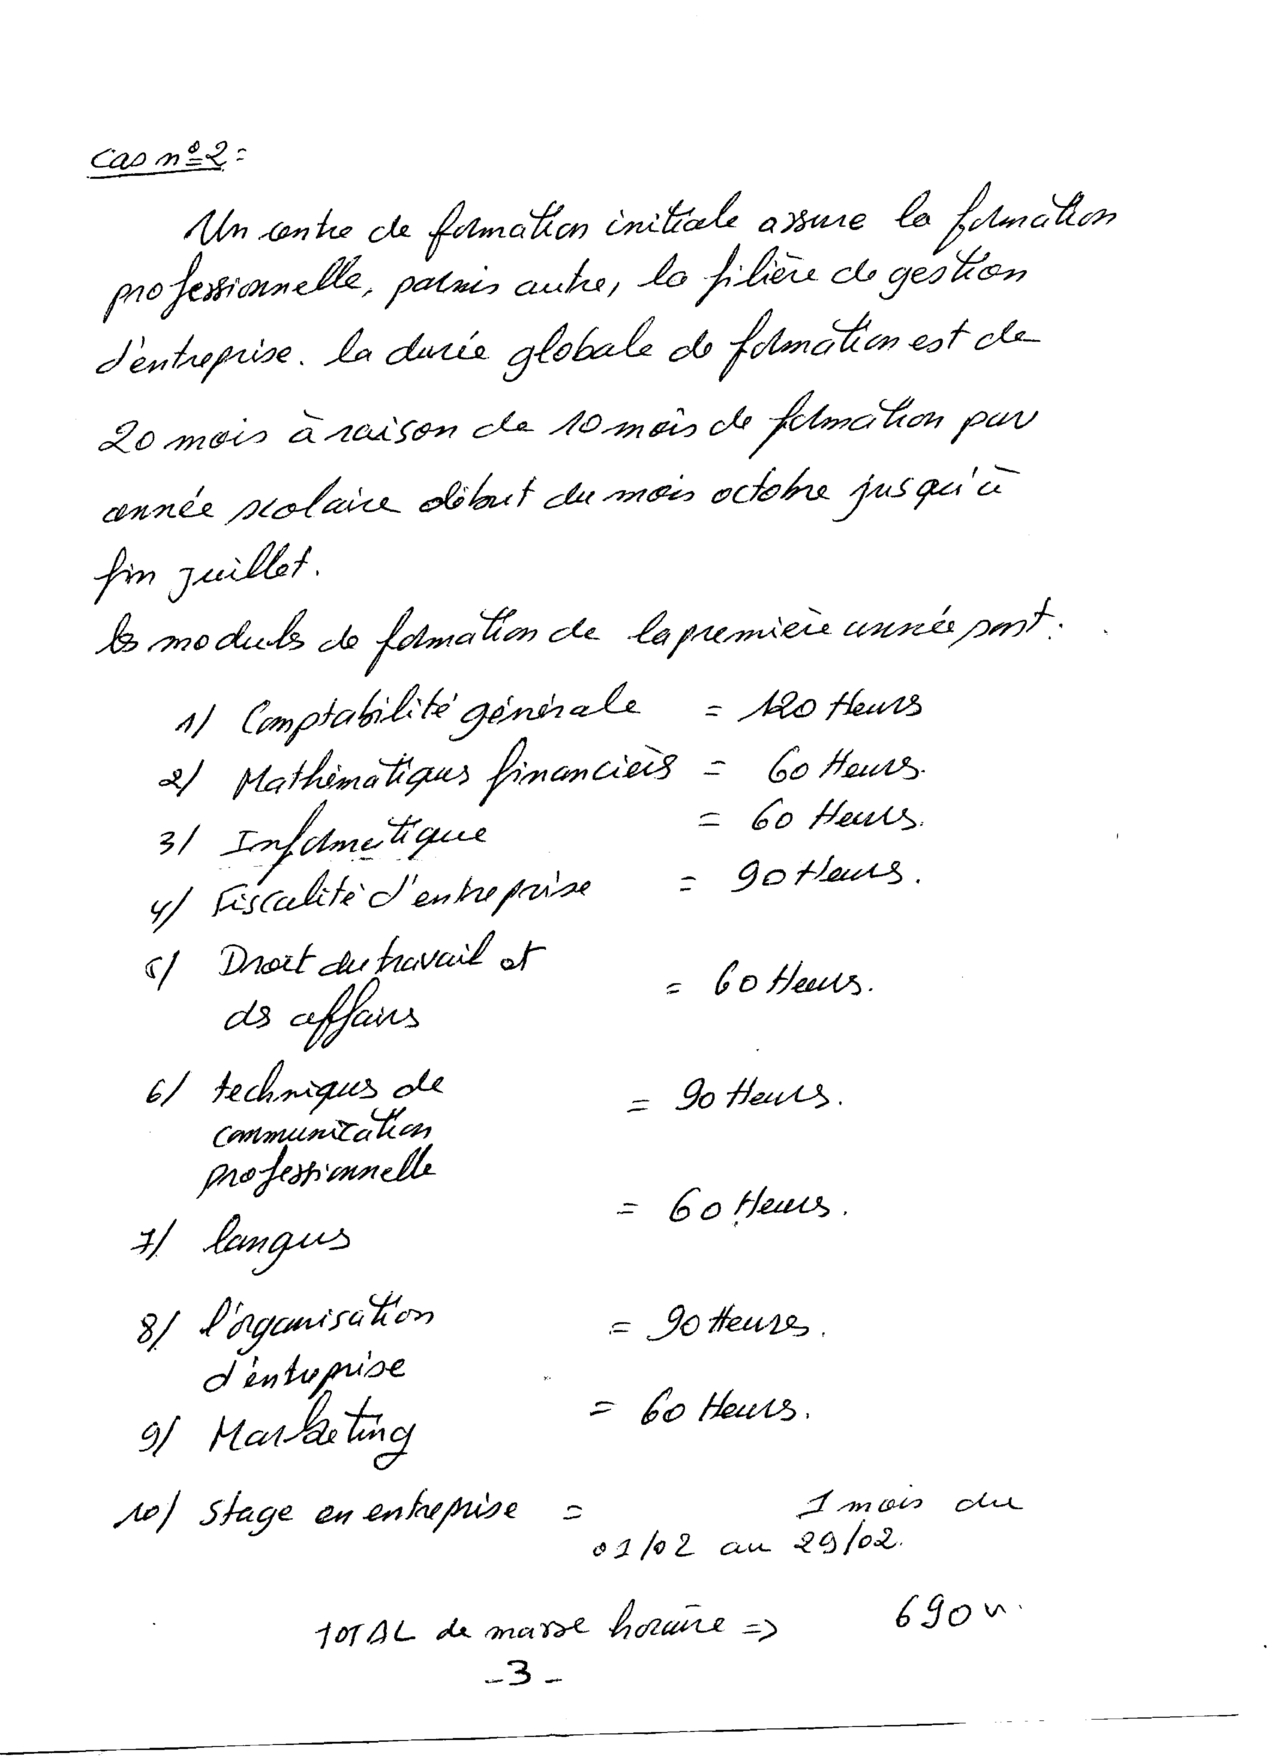 Cas n°2:
Un centre de formation initiale assure la formation
professionnelle, parmis autre, la filière de gestion
d'entreprise. la durée globale de formation est de
20 mois à raison de 10 mois de formation par
année scolaire début du mois octobre jusqu'à
fin juillet.
les modules de formation de la première année sont:
1/ Comptabilité générale = 120 Heures
2/ Mathématiques financières = 60 Heures.
3/ Informatique = 60 Heures.
4/ Fiscalité d'entreprise = 90 Heures.
5/ Droit du travail et
des affaires = 60 Heures.
6/ techniques de = 90 Heures.
communication
professionnelle
7/ langues = 60 Heures.
8/ l'organisation = 90 Heures.
d'entreprise
9/ Marketing = 60 Heures.
10/ Stage en entreprise = 1 mois du
01/02 au 29/02.
TOTAL de masse horaire => 690 H.
-3-